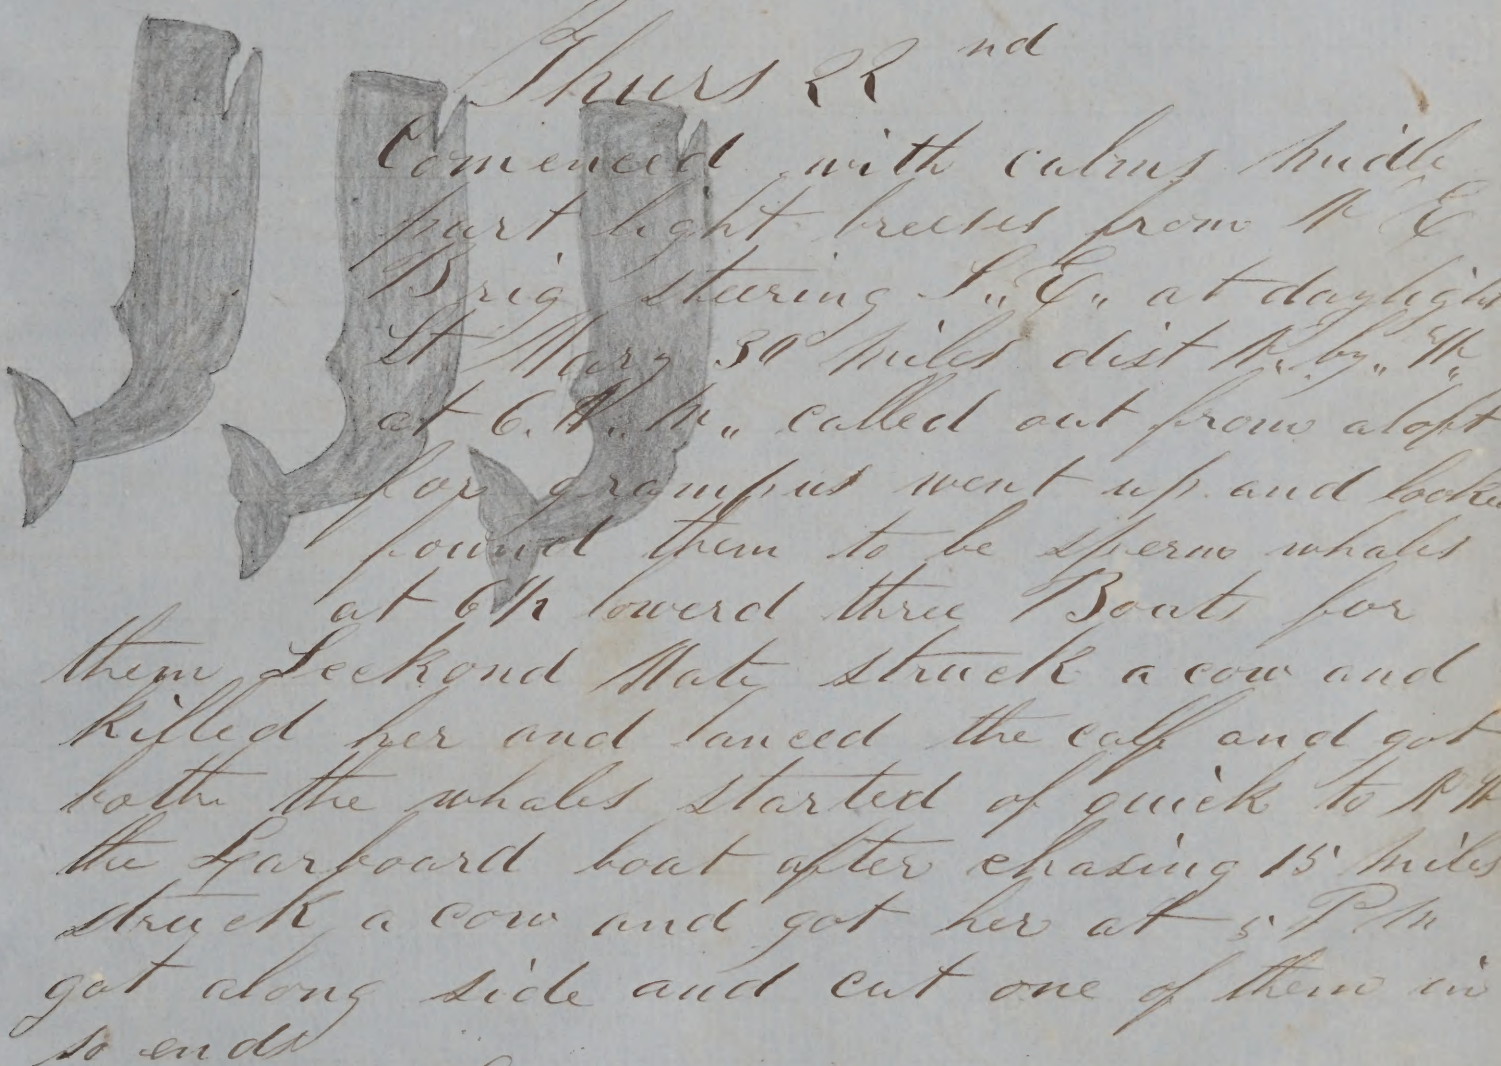 Thurs 22nd
Comenced with calms midle
part light breeses from N E
Brig steering S,, E,, at daylight
St Mary 30 miles dist N,, by,, W,,
at 6. A,, M,, called out from aloft
for grampus went up and looked
found them to be sperm whales
at 6½ lowerd three Boats for
them Seckond Mate struck a cow and
killed her and lanced the calf and got
bothe the whales started of quick to N W
the Larboard boat after chasing 15 miles
struck a cow and got her at 5 P M
got along side and cut one of them in
so ends